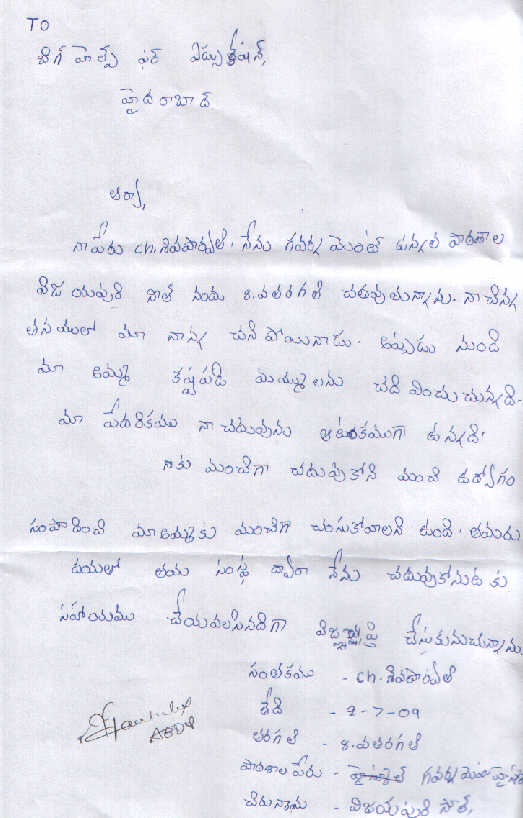 TO
బిగ్ హెల్ప్ ఫర్ ఎడ్యుకేషన్,
హైదరాబాద్
ఆర్యా,
నాపేరు ch.శివపార్వతి. నేను గవర్న మెంట్ ఉన్నత పాఠశాల
విజయపురి సౌత్ నందు 8.వతరగతి చదువుతున్నాను. నా చిన్న
తనయంలో మా నాన్న చనిపోయినాడు. అప్పుడు నుండి
మా అమ్మ కష్టపడి మమ్ములను చదివించుచున్నది.
మా పేదరికము నా చదువును ఆటంకముగా ఉన్నది.
నాకు మంచిగా చదువుకోని మంచి ఉద్యోగం
సంపాదించి మాఅమ్మకు మంచిగా చూసుకోవాలని ఉంది. తమరు
దయతో తమ సంస్థ ద్వారా నేను చదువుకొనుట కు
సహాయము చేయవలసినదిగా విజ్ఞప్తి చేసుకునుచున్నాను.
సంతకము - ch.శివపార్వతి
తేది - 2-7-09
తరగతి - 8.వతరగతి
పాఠశాల పేరు - గవర్నమెంట్ హైస్కూల్
చిరునామ - విజయపురి సౌత్,